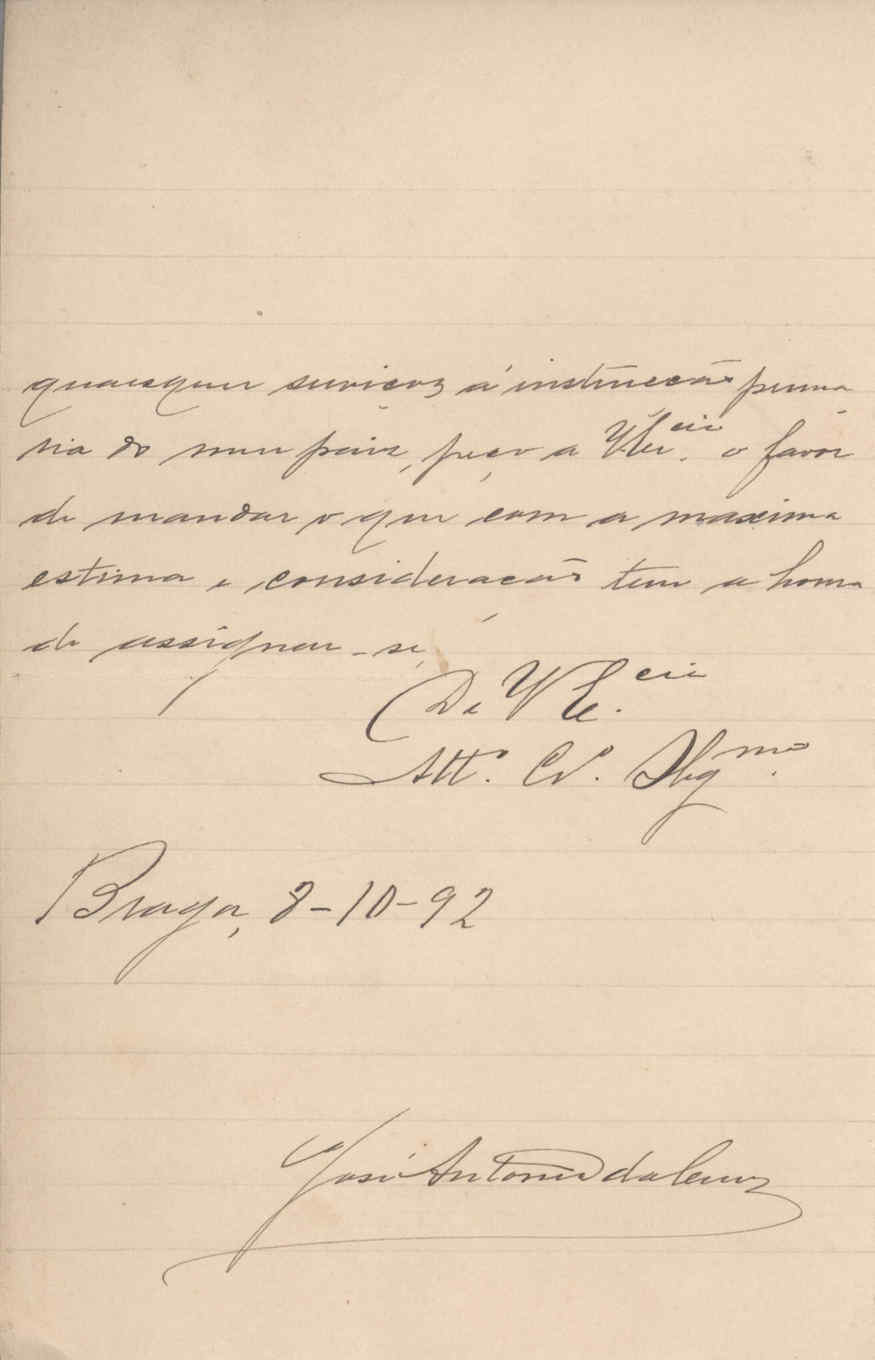 quaesquer serviços á instrucção prima
ria do meu paiz, peço a V Ex.cia o favor
de mandar o que com a maxima
estima e consideração tem a honra
de assignar-se
De V Ex.cia
Att.º Cr.º Obg.mo
Braga, 8-10-92
José Antonio da Cruz